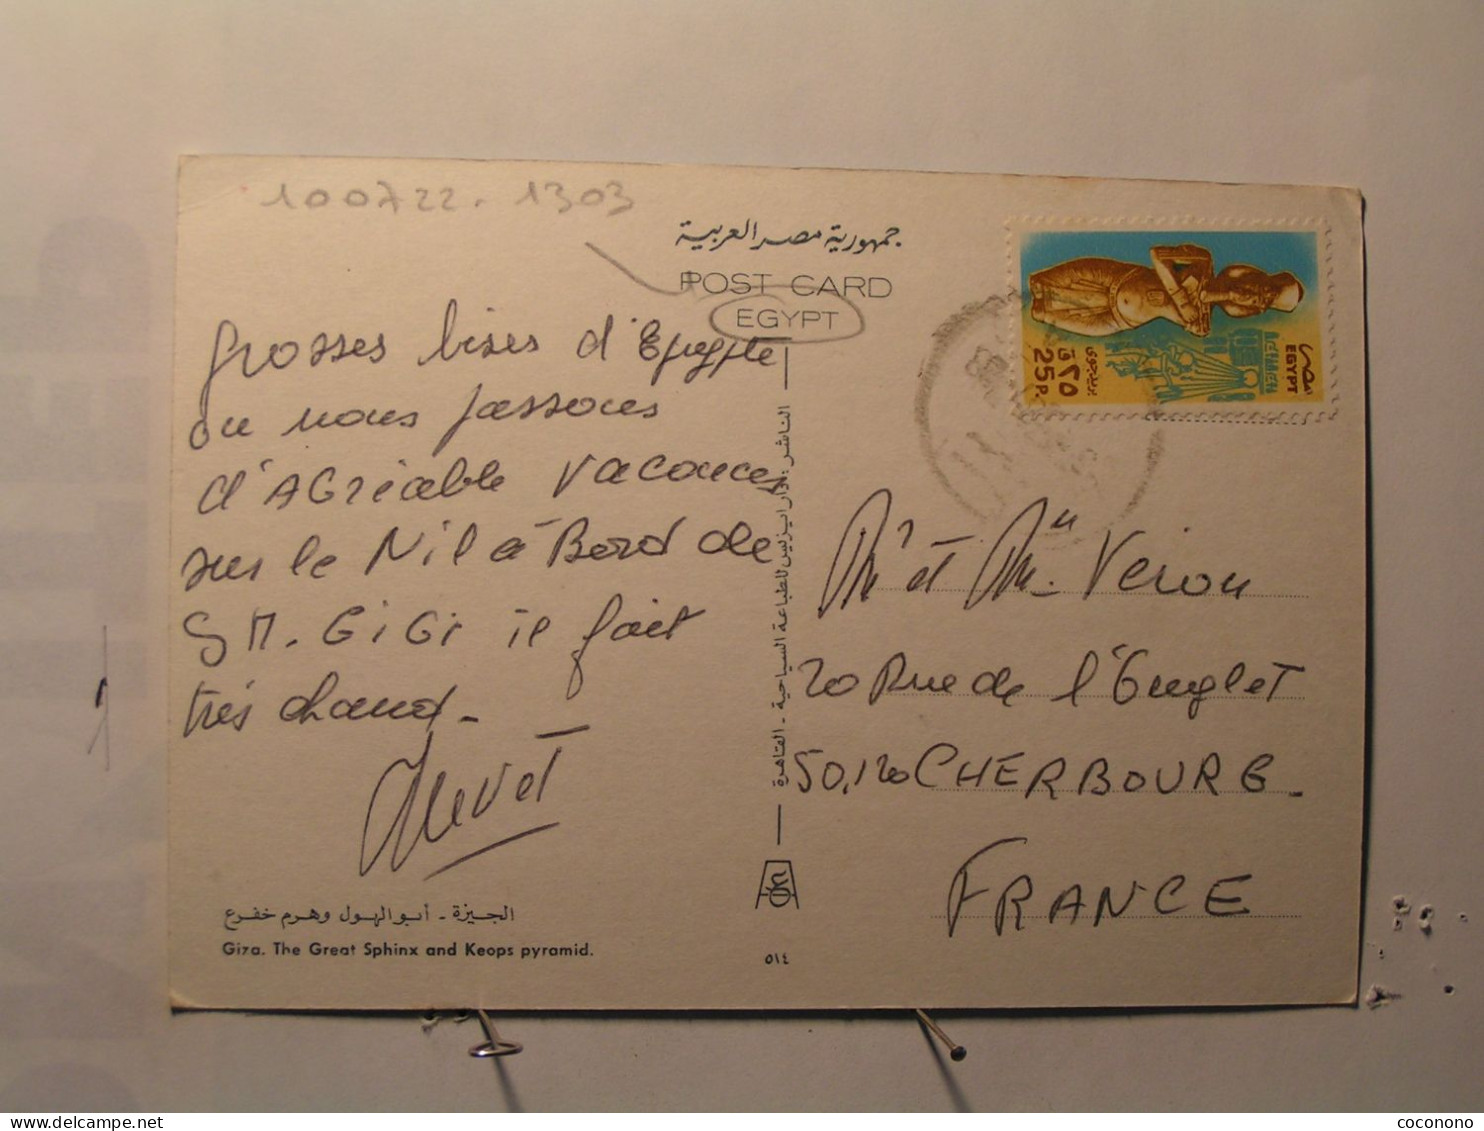 100722. 1303
جمهورية مصر العربية
POST CARD
EGYPT
Grosses bises d'Egypte
ou nous passons
d'AGréable vacances
sur le Nil à Bord de
SM. GiGi il fait
très chaud -
الجيزة - أبو الهول وهرم خفرع
Giza. The Great Sphinx and Keops pyramid.
الناشر : دار ايزيس للطباعة السياحية - القاهرة
٥١٤
مصر
EGYPT
بريد جوى
٢٥ق
25 P.
Mr et Mme Veron
20 Rue de l'Onglet
50,120 CHERBOURG -
FRANCE
coconono